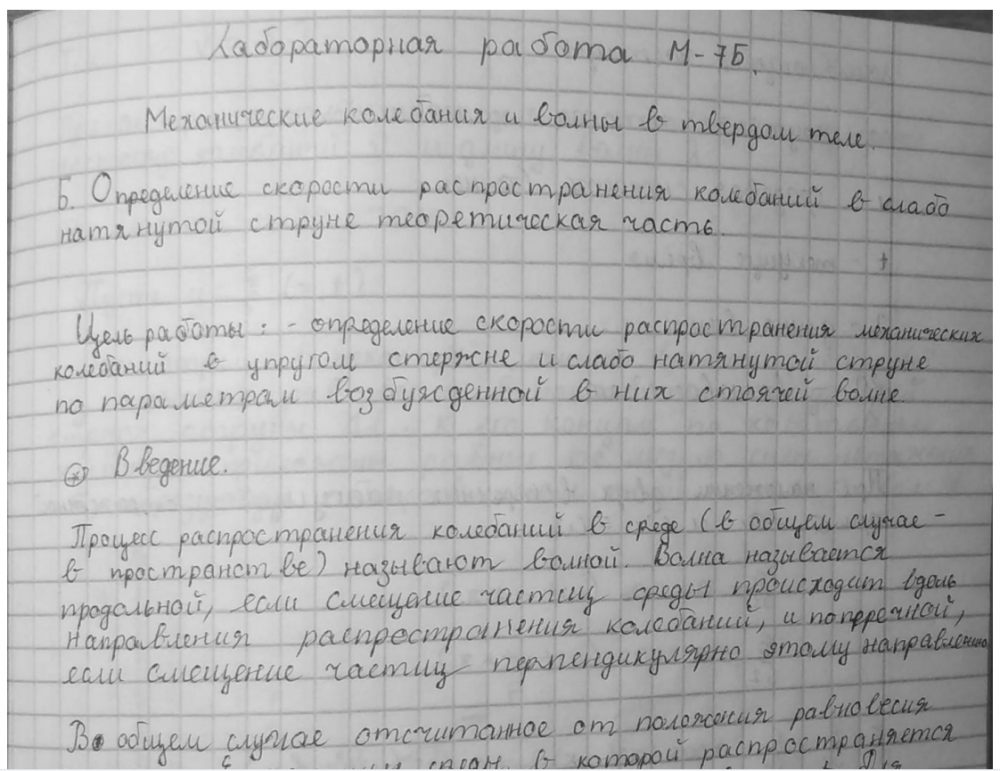 Лабораторная работа М-7Б.
Механические колебания и волны в твердом теле.
Б. Определение скорости распространения колебаний в слабо
натянутой струне теоретическая часть.
Цель работы: - определение скорости распространения механических
колебаний в упругом стержне и слабо натянутой струне
по параметрам возбужденной в них стоячей волне
Введение.
Процесс распространения колебаний в среде (в общем случае -
в пространстве) называют волной. Волна называется
продольной, если смещение частиц среды происходит вдоль
направления распространения колебаний, и поперечной,
если смещение частиц перпендикулярно этому направлению
В общем случае отсчитанное от положения равновесия
в которой распространяется